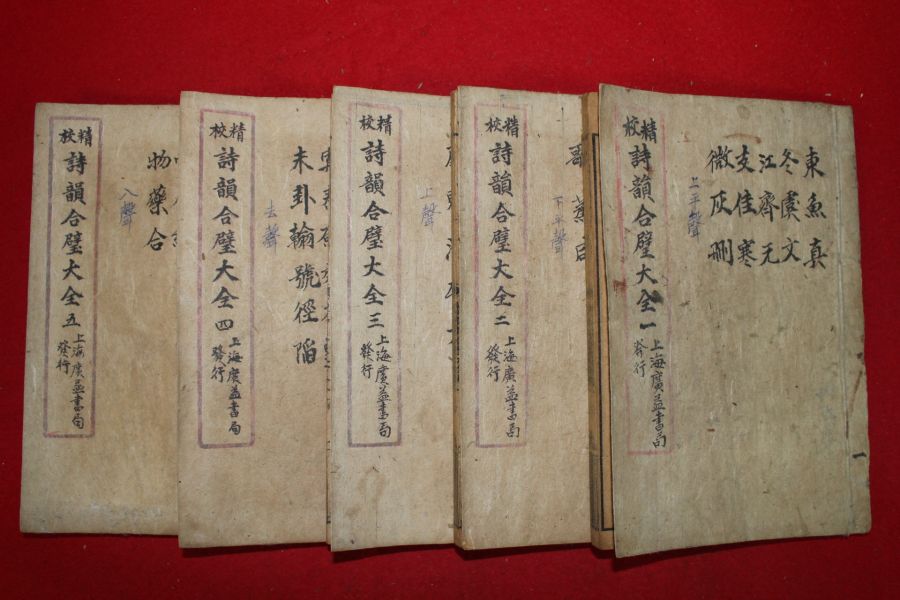 東魚真
冬虞文
江齊元
支佳寒
微灰刪
上平聲
精校
詩韻合璧大全一
上海廣益書局
發行
歌蒸
下平聲
精校
詩韻合璧大全二
上海廣益書局
發行
上聲
精校
詩韻合璧大全三
上海廣益書局
發行
未卦翰號徑陷
去聲
精校
詩韻合璧大全四
上海廣益書局
發行
物藥合
入聲
精校
詩韻合璧大全五
上海廣益書局
發行